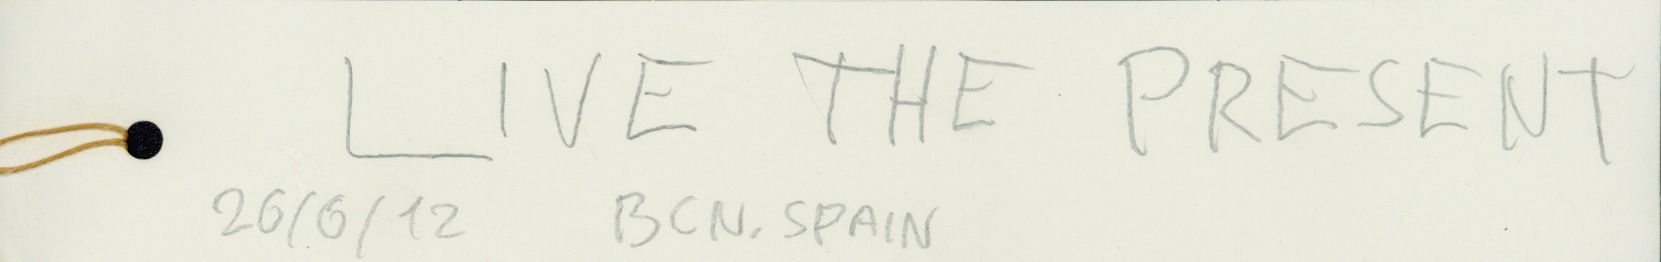 LIVE THE PRESENT
26/6/12 BCN. SPAIN